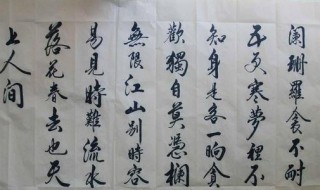 阑珊羅衾不耐
五更寒夢裡不
知身是客一晌貪
歡獨自莫憑欄
無限江山別時容
易見時難流水
落花春去也天
上人间